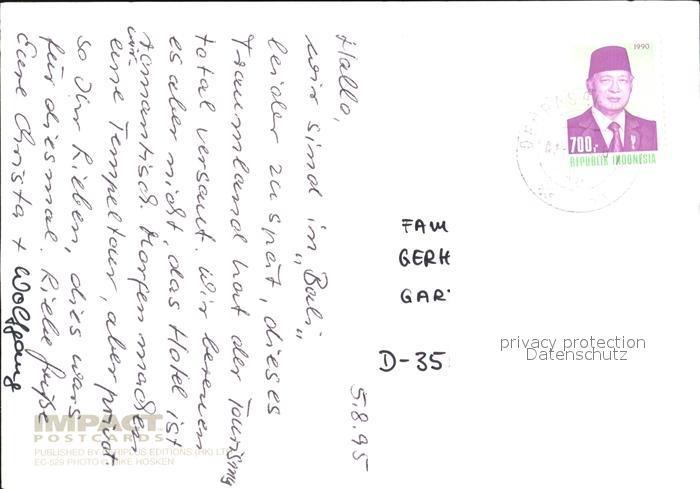 Hallo,
wir sind in „Bali„
leider zu spät, dieses
Traumland hat der Tourismus
total versaut. Wir bereuen
es aber nicht, das Hotel ist
romantisch. Morgen machen
wir
eine Tempeltour, aber privat.
so Ihr Lieben, dies wars
für diesmal. Liebe Grüße
Eure Christa + Wolfgang
5.8.95
1990
700,-
REPUBLIK INDONESIA
FAM
GERH
GAR
D-35
privacy protection
Datenschutz
IMPACT
POSTCARDS
PUBLISHED BY PERIPLUS EDITIONS (HK) LTD
EC-529 PHOTO © MIKE HOSKEN